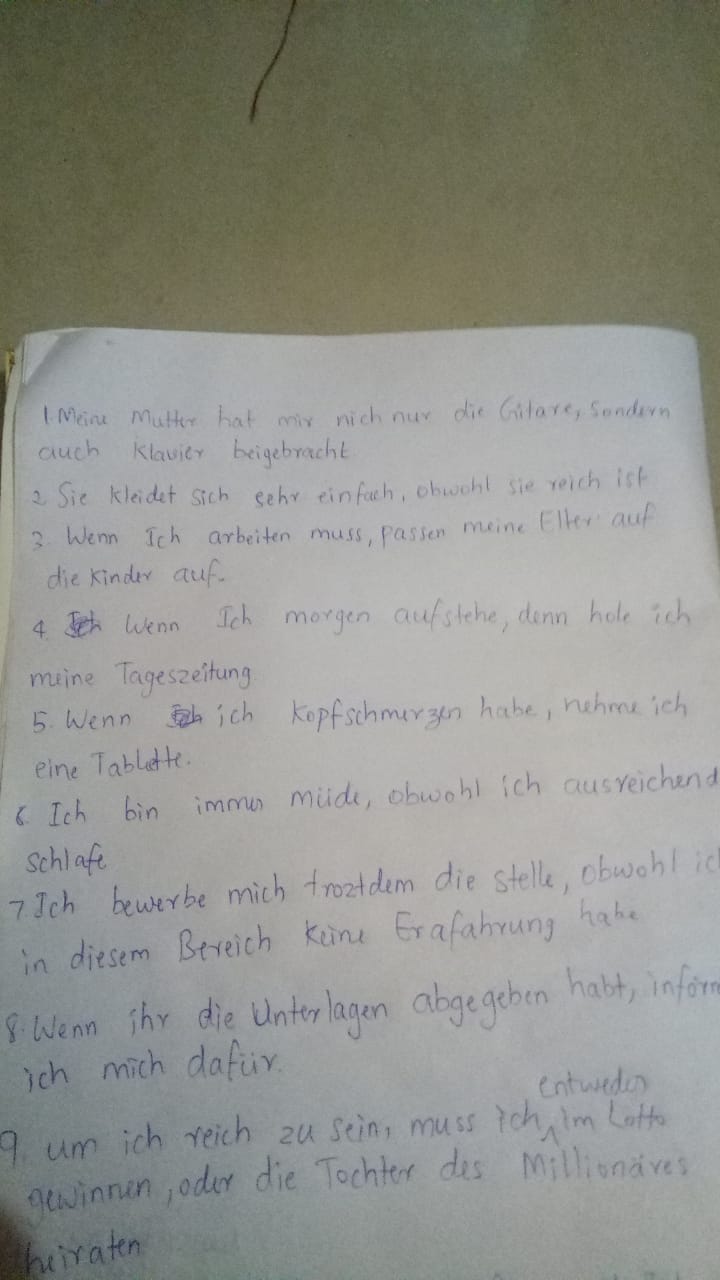 1. Meine Mutter hat mir nich nur die Gitare, sondern
auch Klavier beigebracht
2 Sie kleidet sich sehr einfach, obwohl sie reich ist
3. Wenn Ich arbeiten muss, passen meine Elter auf
die kinder auf.
4 Wenn Ich morgen aufstehe, denn hole ich
meine Tageszeitung
5. Wenn ich Kopfschmerzen habe, nehme ich
eine Tablette.
6 Ich bin immer müde, obwohl ich ausreichend
schlafe
7. Ich bewerbe mich troztdem die stelle, obwohl ich
in diesem Bereich keine Erafahrung habe
8. Wenn ihr die Unterlagen abgegeben habt, inform
ich mich dafür.
entweder
9. um ich reich zu sein, muss ich im Lotto
gewinnen, oder die Tochter des Millionäres
heiraten